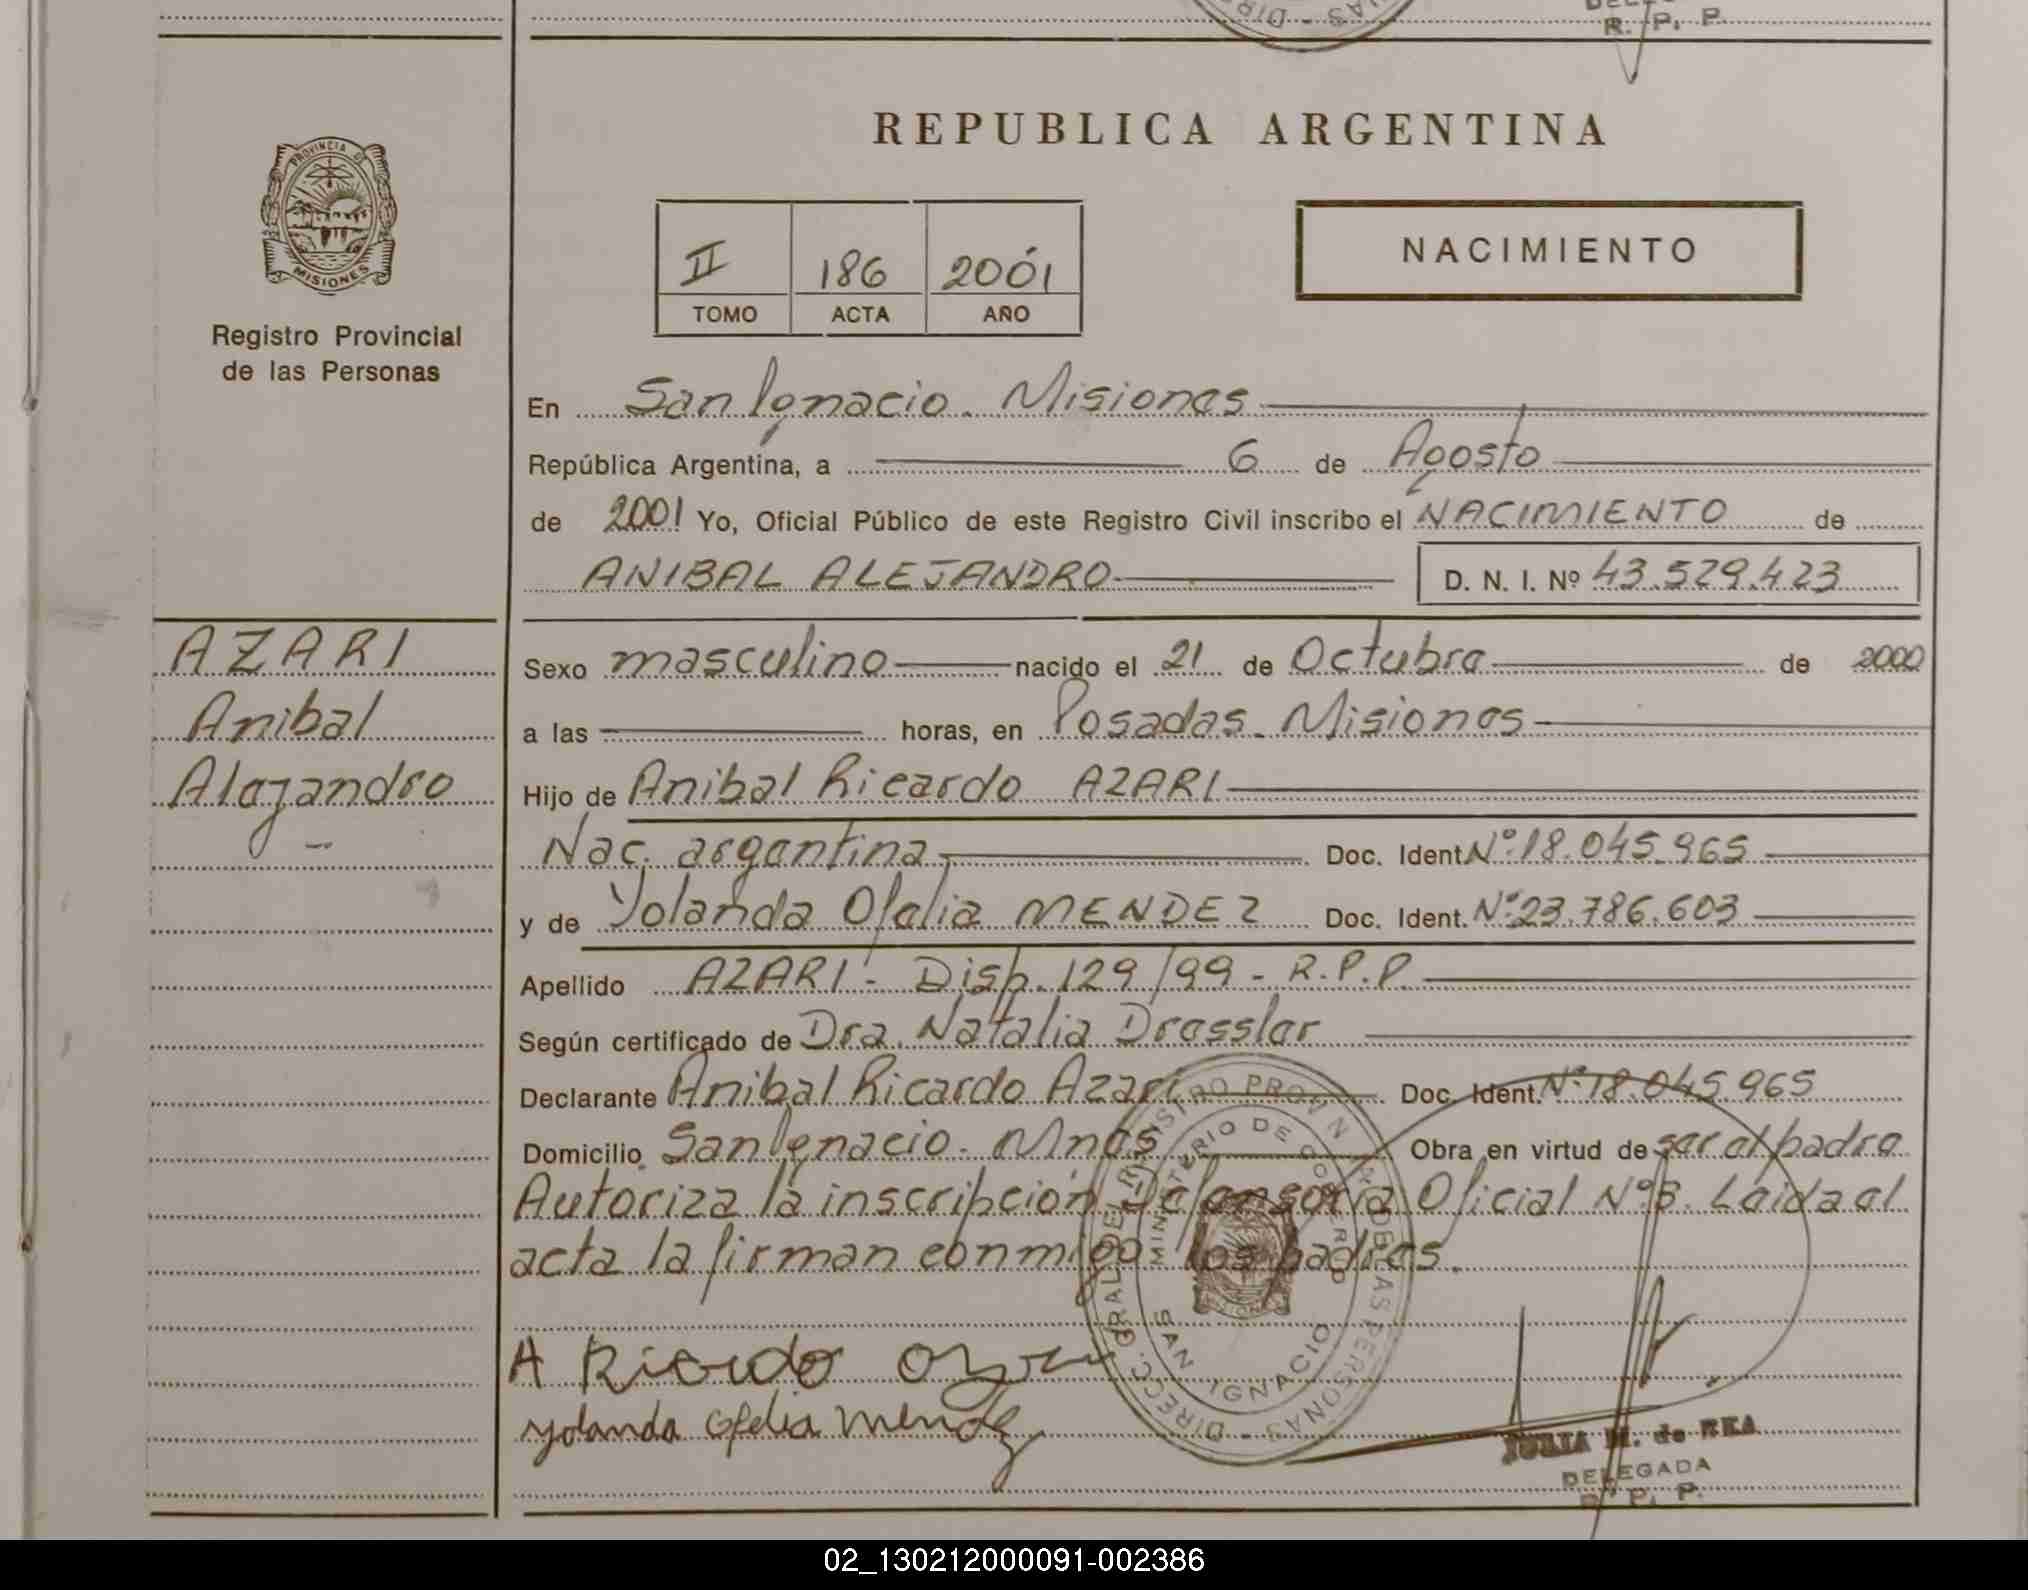 DELE
R. P. P.
PROVINCIA DE
MISIONES
Registro Provincial
de las Personas
REPUBLICA ARGENTINA
II 186 2001
TOMO ACTA AÑO
NACIMIENTO
En San Ignacio. Misiones
República Argentina, a 6 de Agosto
de 2001 Yo, Oficial Público de este Registro Civil inscribo el NACIMIENTO de
ANIBAL ALEJANDRO D. N. I. Nº 43.529.423
AZARI
Anibal
Alejandro
Sexo masculino nacido el 21 de Octubre de 2000
a las horas, en Posadas. Misiones
Hijo de Anibal Ricardo AZARI
Nac. argentina Doc. Ident. Nº 18.045.965
y de Yolanda Ofelia MENDEZ Doc. Ident. Nº 23.786.603
Apellido AZARI - Disp. 129/99 - R.P.P.
Según certificado de Dra. Natalia Dressler
Declarante Anibal Ricardo Azari Doc. Ident. Nº 18.045.965
Domicilio San Ignacio - Mnes Obra en virtud de ser el padre
Autoriza la inscripción Defensoría Oficial Nº 3. Leida el
acta la firman conmigo los padres.
A Ricardo Azari
Yolanda Ofelia Mendez
DIRECC. GRAL. DEL REGISTRO PROVIN. DE LAS PERSONAS
MINISTERIO DE GOBIERNO
SAN IGNACIO
JULIA M. de REA
DELEGADA
R. P. P.
02_130212000091-002386